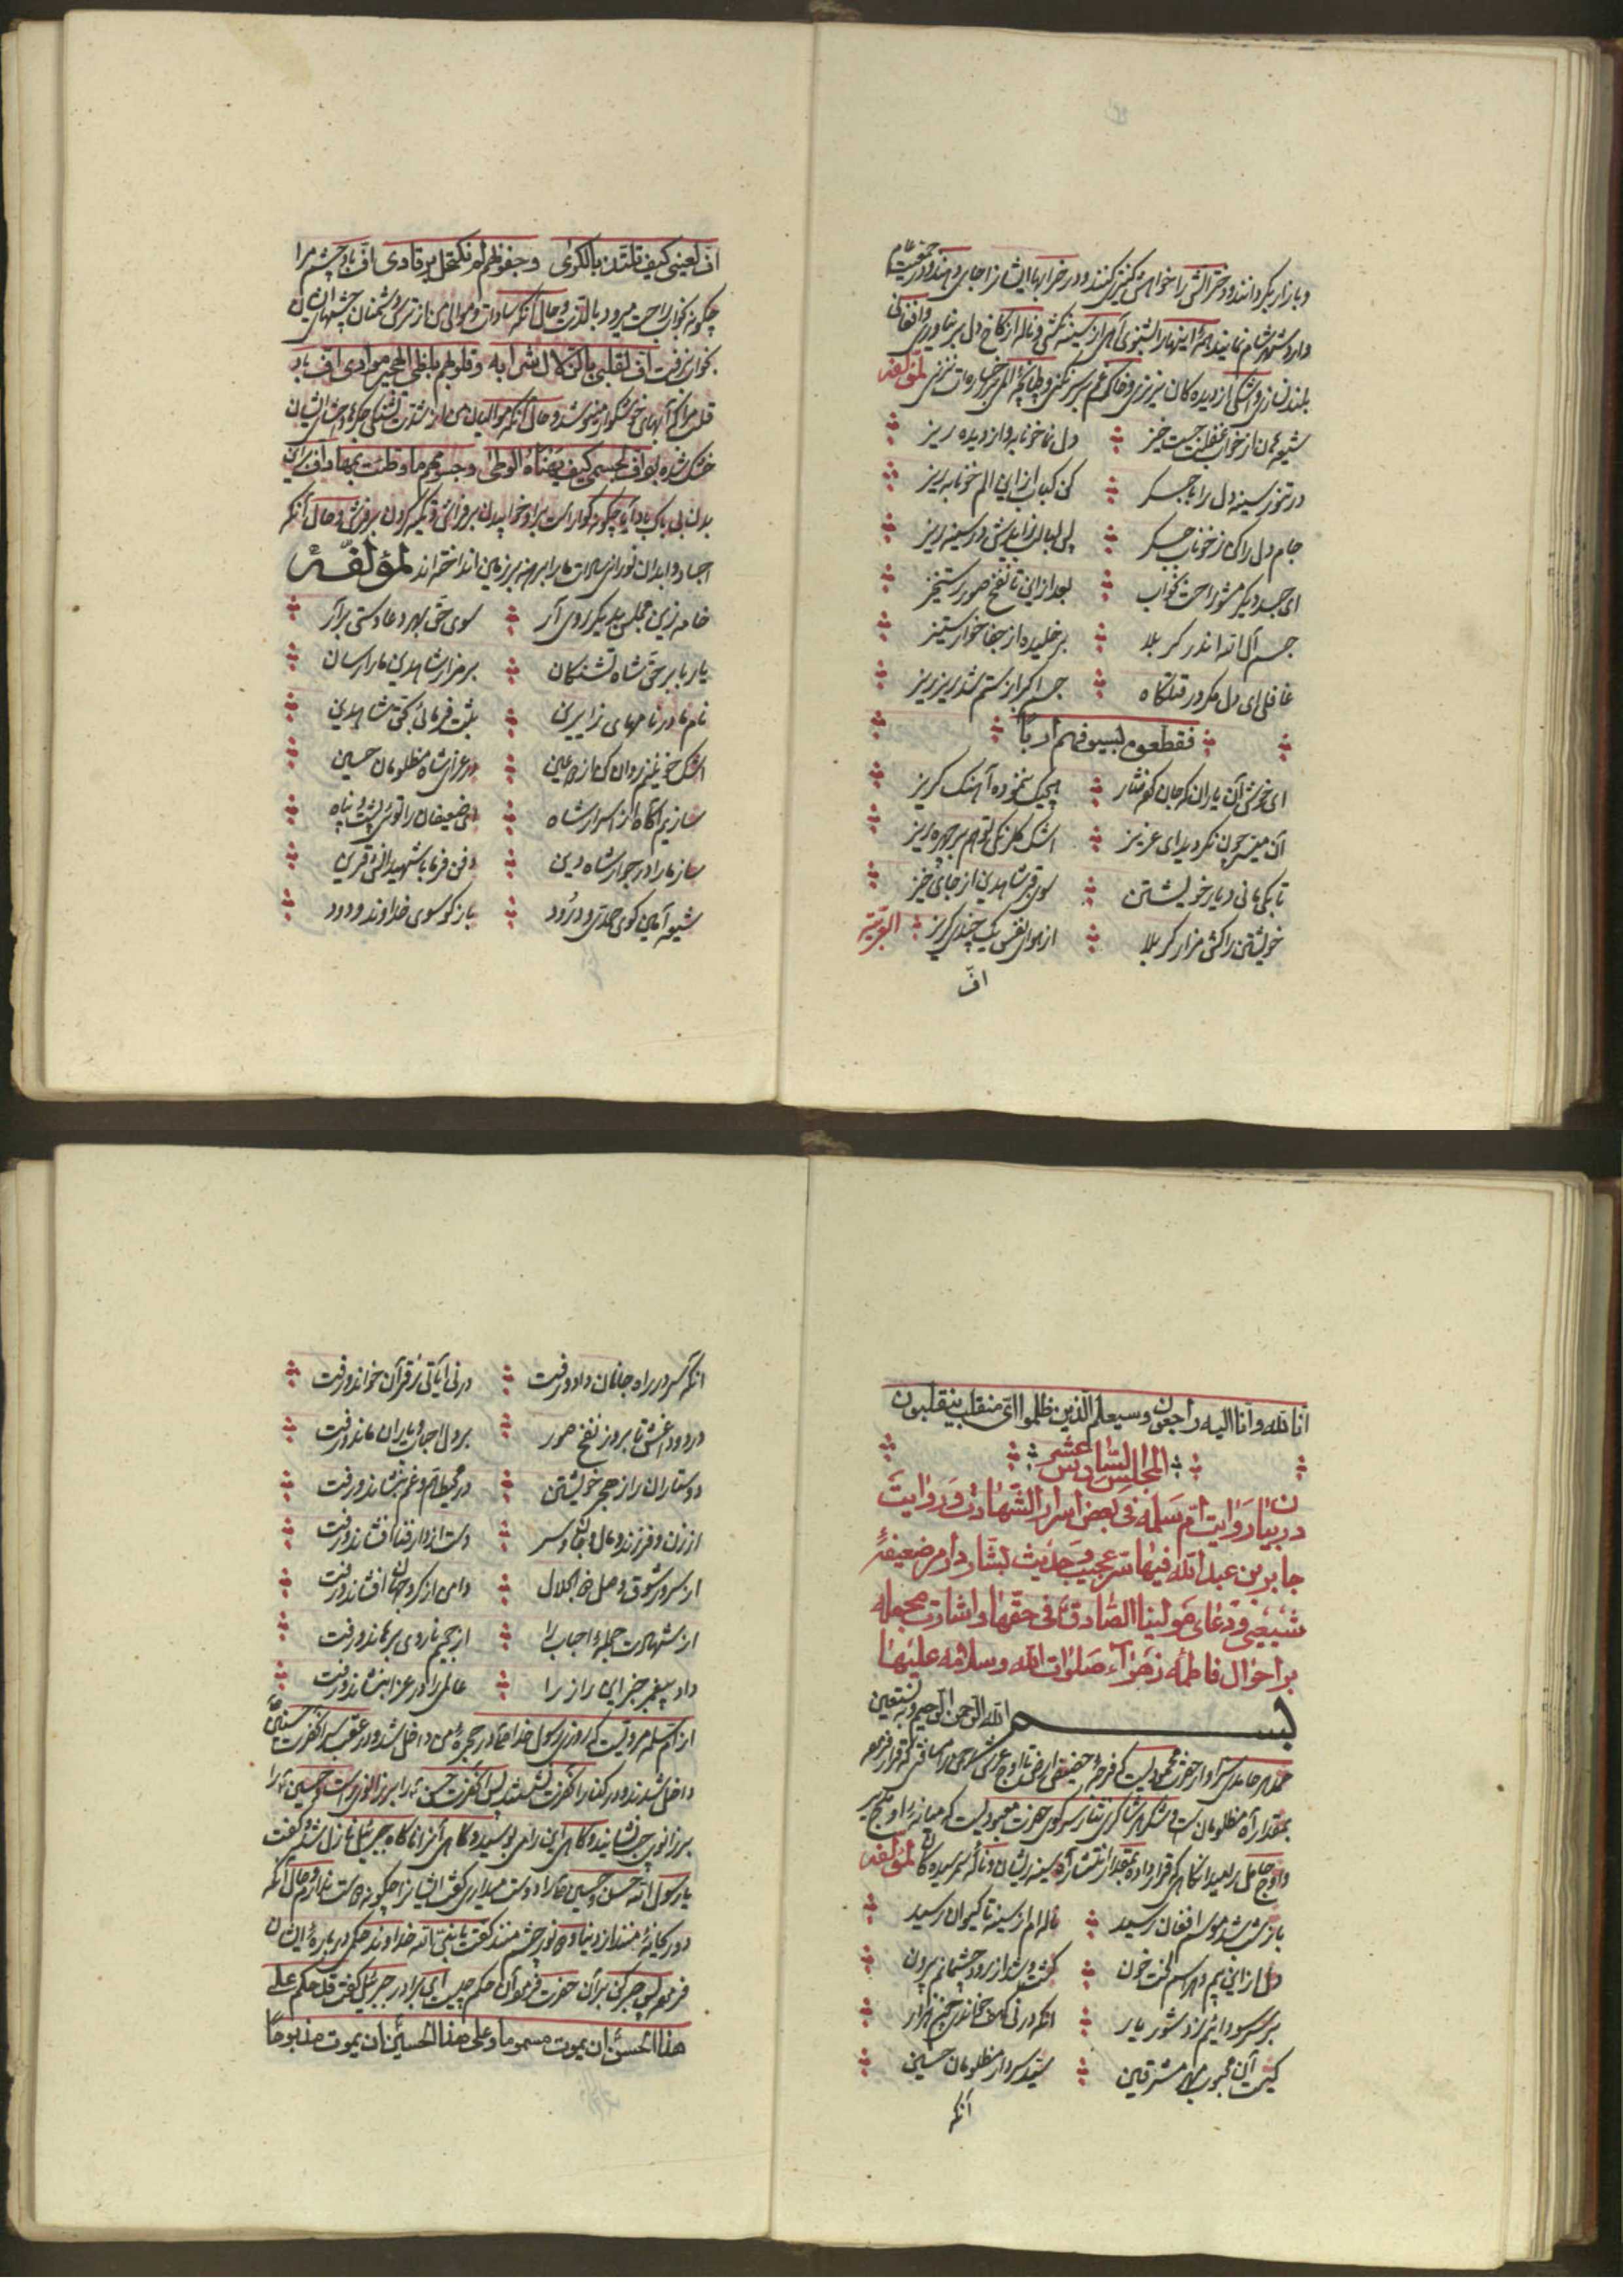 و بازار بگردانند و دخترانش را خواهش کنیزی کنند و در خرابها ایشانرا جای دهند و در جمعیت عام
وارد شهر شام نمایند همهٔ اینها را بشنوی آهی از سینه نکشی و ناله از کاخ دل بر نیاوری و افغانی
بلند نسازی و اشکی از دیده‌گان نریزی و خاک غم بر سر نکنی و طپانچهٔ الم بر رخساره‌ات نزنی لمؤلفه
شیعه هان از خواب غفلت جست خیز
دل نما خونابه و از دیده ریز
در تنور سینه دل را با جگر
کن کباب از این الم خونابه ریز
جام دل را کن ز خوناب جگر
پس لبالب زان بآتش در سینه ریز
ای جسد دیگر مشو راحت بخواب
بعد از این تا نفخ صور رستخیز
جسم آل الله اندر کربلا
بر خلیده از جفا خار ستیز
غافلی ای دل مگر در قتلگاه
جسم اکبر از ستم شد ریز ریز
فقطعوه بسیوفهم ارباً
ای خوش آن یاران که جان کردند نثار
هیچیک ننموده آهنگ گریز
آن میسر چون نگردید ای عزیز
اشک گلرنگی تو هم بر چهره ریز
تا بکی مانی دیار خویشتن
سوی قبر شاهدین از جای خیز
خویشتن را کش مزار کربلا
از هوای نفس یک چندی گریز العربیّة
افّ
افّ لعینی کیف تلتذّ بالکری وجفونهم لم تکتحل برقادی افّ باد چشم مرا
چگونه خواب راحت میرود بالذّت و حال آنکه سادات و موالی من از ترس دشمنان چشمهای ایشان
بخواب نرفت افّ لقلبی بالزلال شرابه وقلوبهم بلظی الهجیر صوادی افّ باد
قلب مرا که آبهای خوشگوار مینوشد و حال آنکه موالیان من از شدت تشنگی جگرها و احشای ایشان
خشک شده بود افّ لجسمی کیف یهناه الوطی وجسومهم ما وطئت بمهاد افّ برای
بدن بی باک باد آیا چگونه گوارا است بر او خوابیدن بر فراش و تکیه کردن بر فرش و حال آنکه
اجساد و ابدان نورانی سادات ما را برهنه بر زمین انداخته‌اند لمؤلّفه
خامه زین مجلس بدیگر روی آر
سوی حقّ بهر دعا دستی برآر
یا ربا بر حقّ شاه تشنگان
بر مزار شاهدین ما را رسان
نام ما در نامهای زایرین
ثبت فرمائی بحقّ شاهدین
اشک خونینم روان کن از دو عین
در عزای شاه مظلومان حسین
سازیم آگاه از اسرار شاه
ای ضعیفان را توئی پشت و پناه
ساز ما را در جوار شاه دین
دفن فرما با شهیدانش قرین
شیعه آمین گوی صد ره و درود
باز گو سوی خداوند ودود
انا لله وانا الیه راجعون وسیعلم الذین ظلموا ای منقلب ینقلبون
المجلس السّادس عشر
در بیان روایت امّ سلمه فی بعض اسرار الشّهادت و روایت
جابر بن عبد الله فیها سرّ عجیب و حدیث بشّار و امر ضعیفهٔ
شیعی و دعای مولینا الصّادق فی حقّها و اشارت مجمله
بر احوال فاطمه زهراء صلوات الله وسلامه علیها
بسم الله الرحمن الرحیم وبه نستعین
حمد هر حامدی سزاوار حضرت محمودیست که فرجه حضیض ارض تا اوج عرش را مسافتی که قرار فرموده
بمقدار آه مظلومان است و شکر هر شاکری نثار سر کوی حضرت معبودیست که میانه اوج
لمؤلّفه
باز شد موسم افغان رسید
ناله‌ام از سینه تا کیوان رسید
دل از این بیم و هراسم گشت خون
گشت و شد از رود چشمانم برون
بر سر سودائیم زد شور یار
انکه در نی گفت
کیست آن محبوب مشرقین
سیّد و سردار مظلومان حسین
آنکه
انکه سر در راه جانان داد و رفت
در نی آیاتی ز قرآن خواند و رفت
درد و داغش تا بروز نفخ صور
بر دل احباب و یاران ماند و رفت
دوستاران را ز هجر خویشتن
در محیط هم و غم بنشاند و رفت
از زن و فرزند و مال و جان و سر
دست از دار فنا افشاند و رفت
از سرور شوق وصل ذو الجلال
دامن از گرد جهان افشاند و رفت
از شهادت جملهٔ احباب را
از جحیم نار وی برهاند و رفت
داد پیغمبر خبر این راز را
عالمی را در عزا بنشاند و رفت
از ام سلمه مرویست که روزی رسول خدا در حجره من داخل شد و در عقب سر آنحضرت حسنین
داخل شدند و در کنار آنحضرت نشستند پس آنحضرت حسن را بر زانوی راست و حسین را
بر زانوی چپ نشانید و گاهی این را می بوسید و گاهی آنرا ناگاه جبرئیل نازل شد و گفت
یا رسول الله حسن و حسین را دوست میداری گفت ایشانرا چگونه دوست ندارم و حال آنکه
دو ریحانهٔ منند از دنیا و دو نور چشم منند گفت یا نبی الله خداوند حکمی در بارهٔ ایشان
فرموده پس صبر کن بر آن حضرت فرمود آن حکم چیست ای برادر جبرئیل گفت قد حکم علی
هذا الحسن ان یموت مسموما وعلی هذا الحسین ان یموت مذبوحا